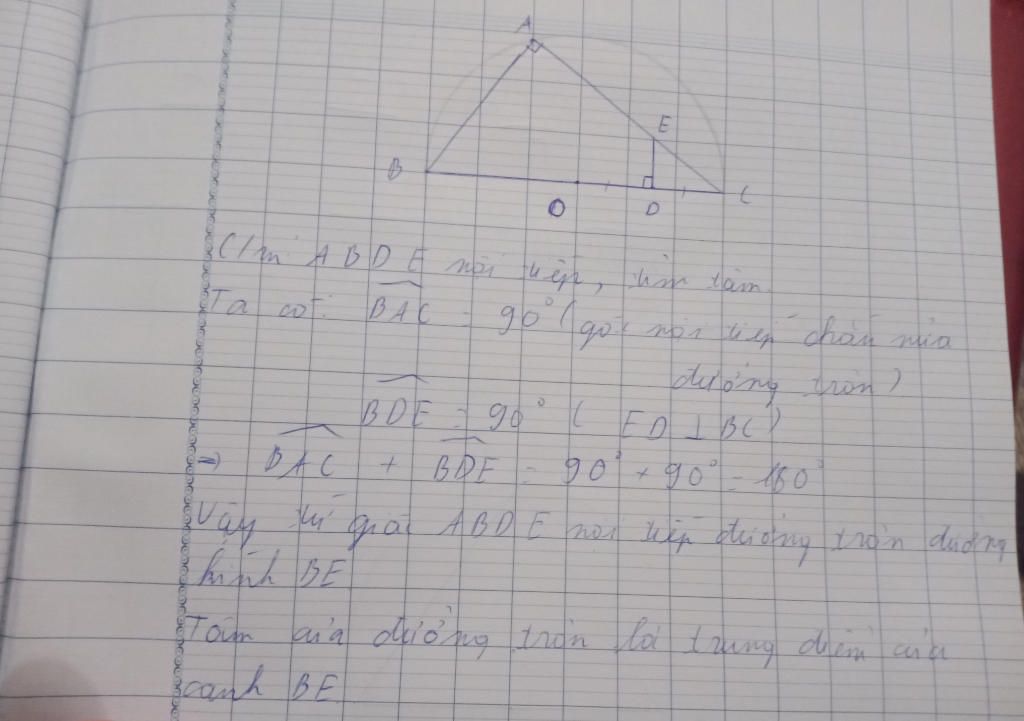 A
E
B
C
O
D
C/m ABDE nội tiếp, tìm tâm
Ta có: BAC = 90° (góc nội tiếp chắn nửa
đường tròn)
BDE = 90° (ED ⊥ BC)
=> BAC + BDE = 90° + 90° = 180°
Vậy tứ giác ABDE nội tiếp đường tròn đường
kính BE
Tâm của đường tròn là trung điểm của
cạnh BE